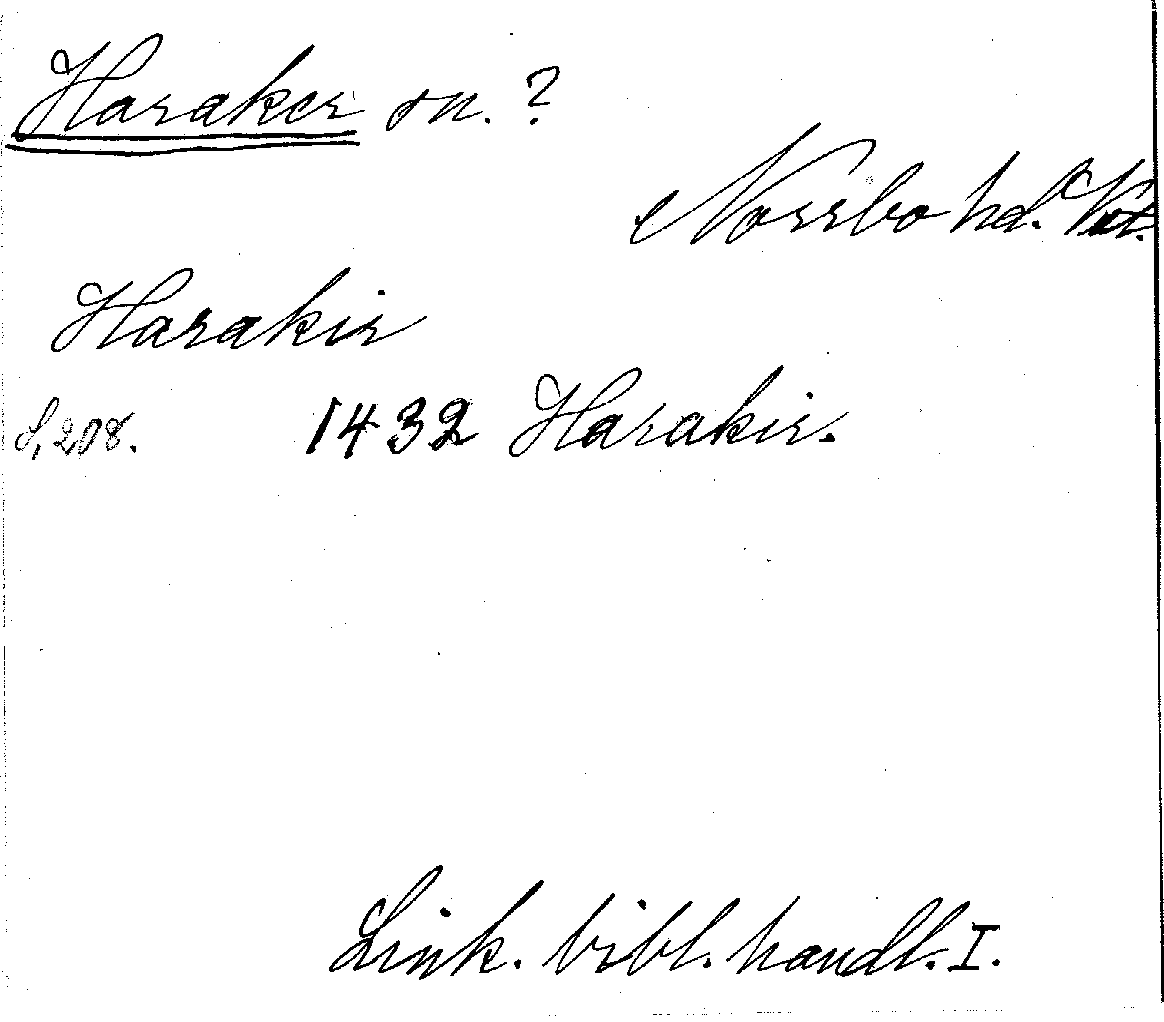 Haraker sn. ?
Norrbo hd. Vstm.
Harakir
S, 208. 1432 Harakir.
Link. bibl. handl. I.